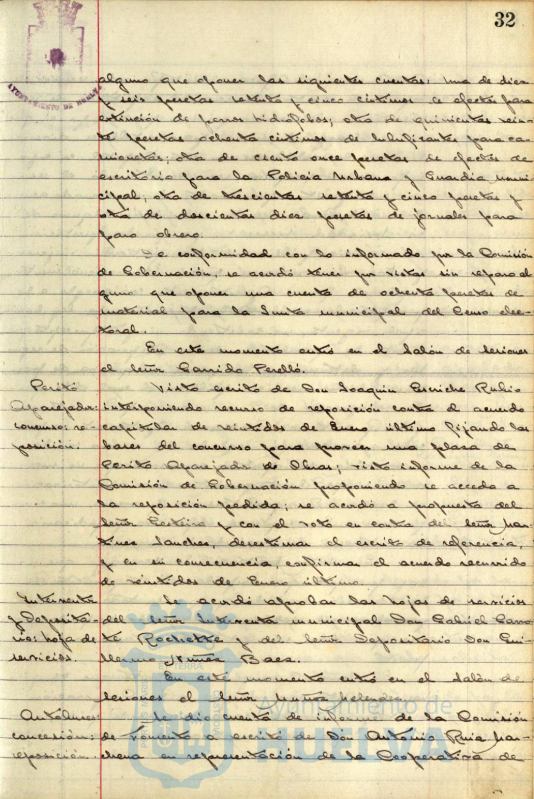 32
AYUNTAMIENTO DE HUELVA
alguno que oponer las siguientes cuentas: una de diez
y seis pesetas setenta y cinco céntimos de efectos para
extinción de perros hidrófobos; otra de quinientas vein-
te pesetas ochenta céntimos de lubrificantes para ca-
mionetas; otra de ciento once pesetas de efectos de
escritorio para la Policia Urbana y Guardia muni-
cipal; otra de trescientas setenta y cinco pesetas y
otra de doscientas diez pesetas de jornales para
paro obrero.
De conformidad con lo informado por la Comisión
de Gobernación, se acordó tener por vistas sin reparo al
guno que oponer una cuenta de ochenta pesetas de
material para la Junta municipal del Censo elec-
toral.
En este momento entró en el Salón de Sesiones
el Señor Garrido Perelló.
Perito
Aparejador:
concurso: re-
posición.
Visto escrito de Don Joaquin Escriche Rubio
interponiendo recurso de reposición contra el acuerdo
capitular de veintidos de Enero último fijando las
bases del concurso para proveer una plaza de
Perito Aparejador de Obras; visto informe de la
Comisión de Gobernación proponiendo se acceda a
la reposición pedida; se acordó a propuesta del
Señor y con el voto en contra del Señor Mar-
tinez Sanchez, desestimar el escrito de referencia,
y en su consecuencia, confirmar el acuerdo recurrido
de veintidos de Enero último.
Interventor
y Deposita-
rio: hoja de
servicios.
Se acordó aprobar las hojas de servicios
del Señor Interventor municipal Don Gabriel
Rochette y del Señor Depositario Don Gui-
llermo Nuñez Baes.
En este momento entró en el Salón de
Sesiones el Señor Muñoz
Autobuses:
concesión:
reposición.
Se dio cuenta de informe de la Comisión
de Fomento a escrito de Don Antonio Ruiz Mar-
chena en representación de la Cooperativa de
Ayuntamiento de
HUELVA